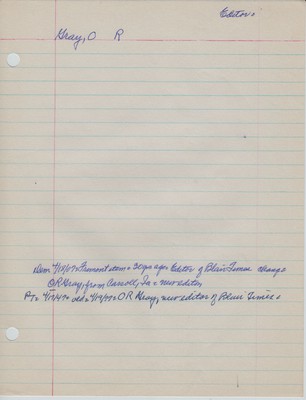 Editors
Gray, O R
Dem 4/10/69 Fremont item = 30 yrs ago Editor of Blair Times change
OR Gray, from Carroll, Ia = new editor
PT = old = OR Gray, new editor of Blair Times